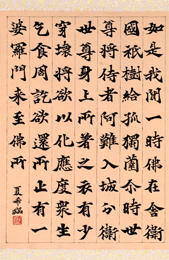 如是我聞一時佛在舍衛
國祇樹給孤獨園尒時世
尊将侍者阿難入城分衛
世尊身上所著之衣有少
穿壞将欲以化應度衆生
乞食周訖欲還所止有一
婆羅門来至佛所
夏